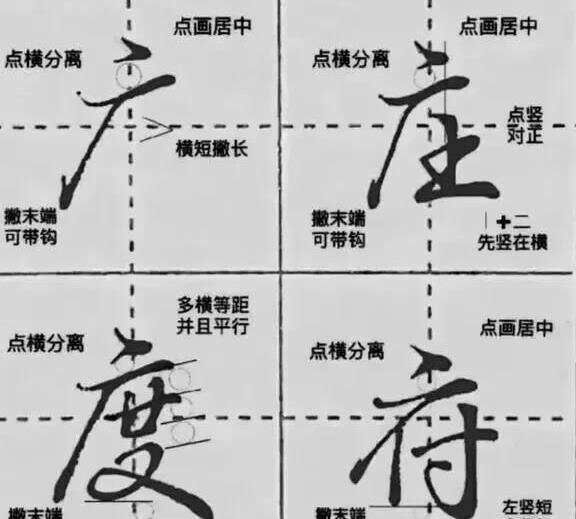 点画居中
点横分离
广
横短撇长
撇末端
可带钩
点画居中
点横分离
庄
点竖
对正
撇末端
可带钩
丨+二
先竖在横
多横等距
并且平行
点横分离
度
撇末端
点画居中
点横分离
府
撇末端
左竖短